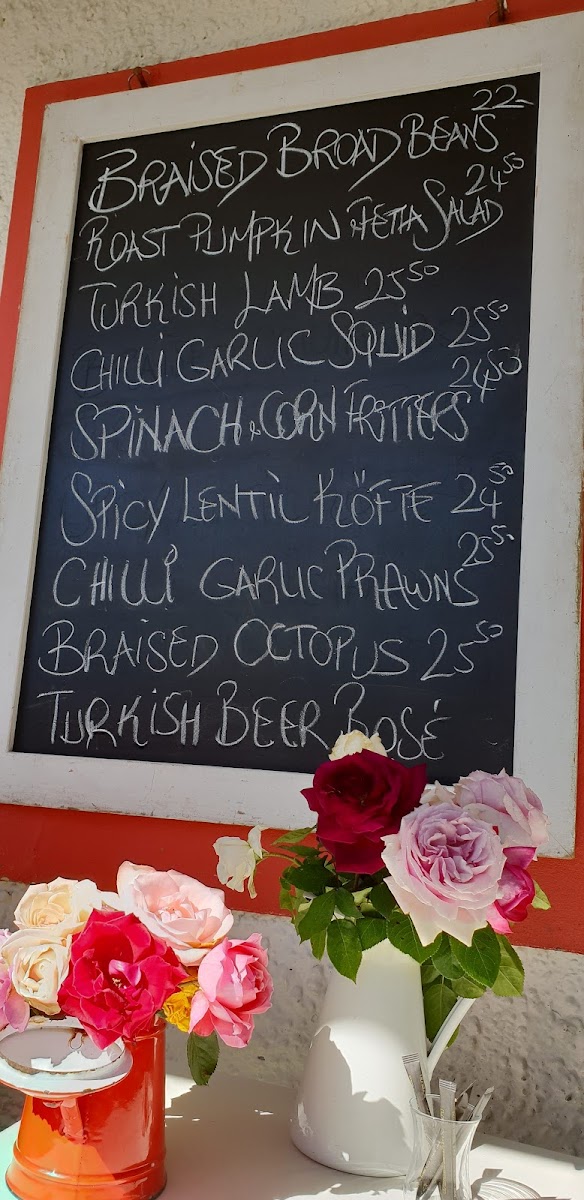 BRAISED BROAD BEANS 22-
ROAST PUMPKIN & FETTA SALAD 24 50
TURKISH LAMB 25 50
CHILLI GARLIC SQUID 25 50
SPINACH & CORN FRITTERS 24 50
SPICY LENTIL KÖFTE 24 50
CHILLI GARLIC PRAWNS 25 50
BRAISED OCTOPUS 25 50
TURKISH BEER ROSÉ